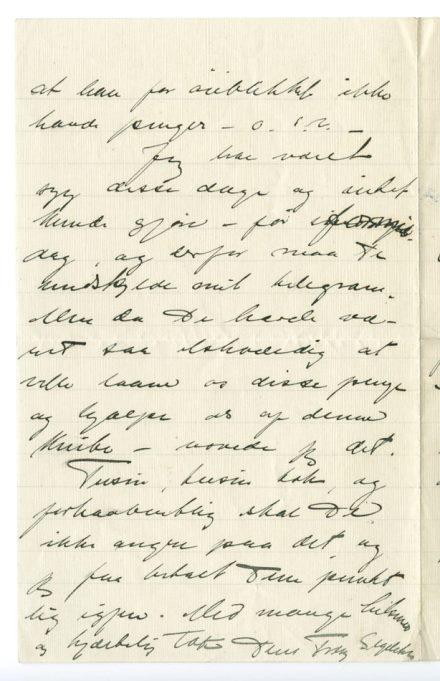 at han for øieblikket ikke
havde penger – o. s. v. –
Jeg har været
syg disse dage og intet
kunde gjøre – før i formid-
dag, og derfor maa De
undskylde mit telegram.
Men da De havde væ-
ret saa elskværdig at
ville laane os disse penge
og hjælpe os af denne
knibe – vovede jeg det.
Tusin, tusin tak, og
forhaabentlig skal De
ikke angre paa det, og
jeg faa betalt Dem punkt
lig igjen. Med mange hilsener
og hjærtelig Tak Deres